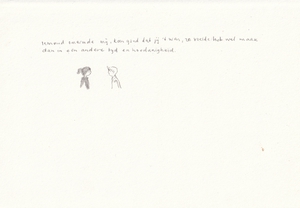 iemand noemde mij, heel goed dat jij 't was, ze voelde het wel maar
dan in een andere tijd en hoedanigheid.